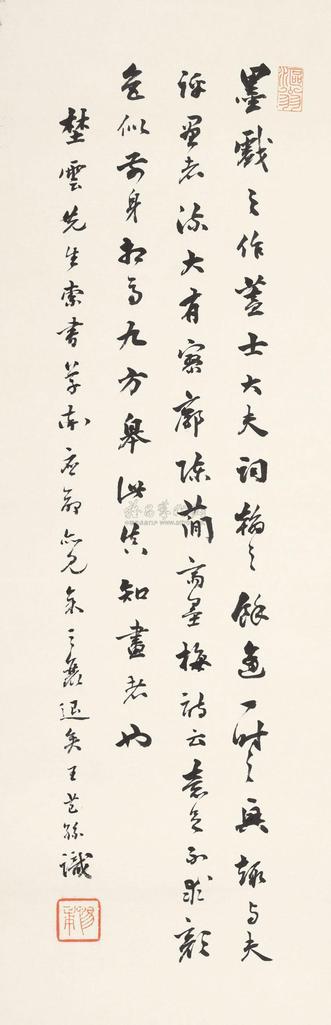 漚
墨戲之作蓋士大夫詞翰之餘適一時之興趣与夫
評畫者流大有寥廓陳簡齋墨梅詩云意足不求顏
色似前身相馬九方皋此真知畫者也
埜雲先生索書草 應 亦見余之 退矣王芑孫識
惕甫